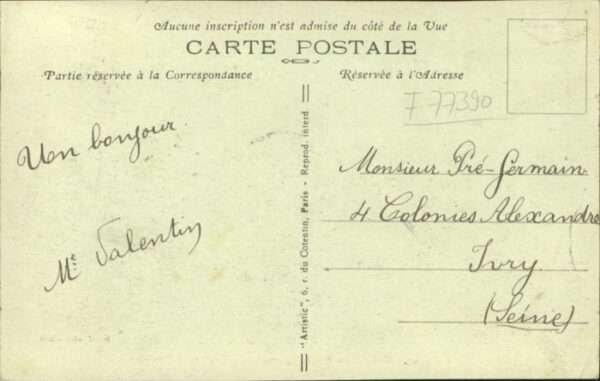 Aucune inscription n'est admise du côté de la Vue
CARTE POSTALE
Partie réservée à la Correspondance
Réservée à l'Adresse
F 77390
Un bonjour
Me Valentin
"Artistic", 6, r. du Cotentin, Paris - Reprod. interd
Monsieur Pré-Germain
4 Colonies Alexandre
Ivry
(Seine)